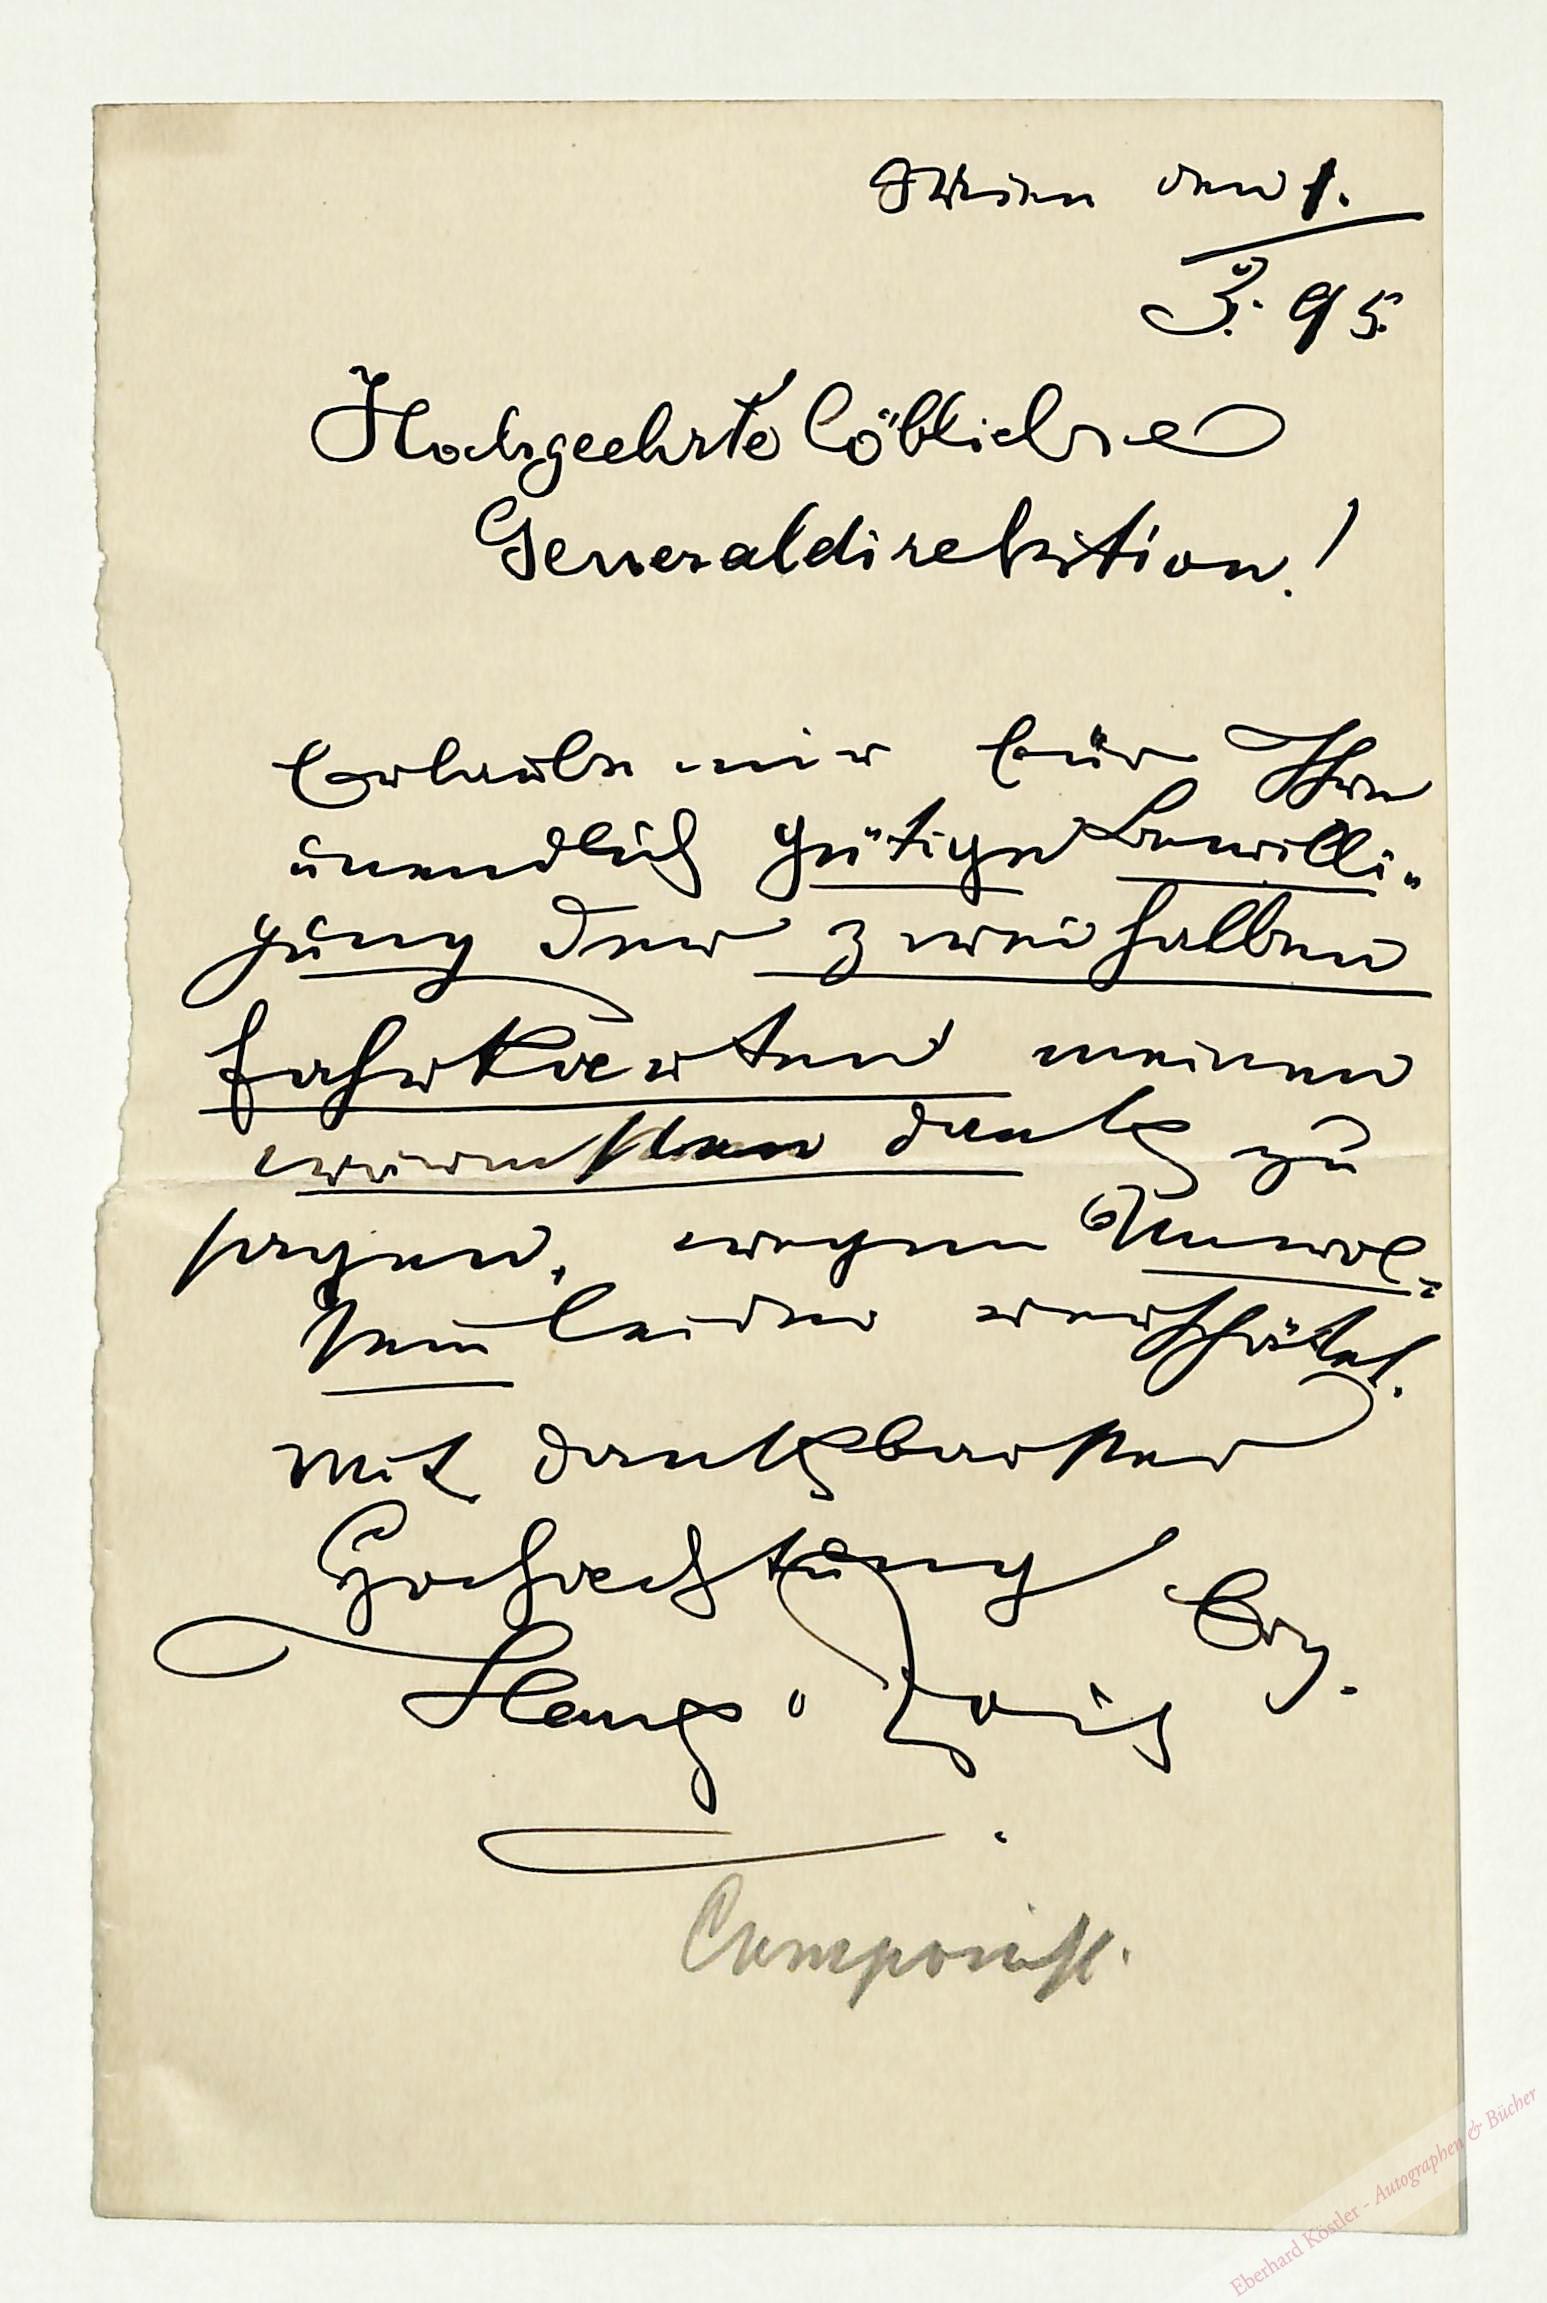 Wien den 1.
3. 95.
Hochgeehrte löbliche
Generaldirektion!
Erlaube mir für Ihre
unendlich gütige Bewilli-
gung der zwei halben
Fahrkarten meinen
wärmsten Dank zu
sagen, wegen Unwol-
sein leider verspätet.
Mit dankbarster
Hochachtung
Erg.
Composist.
Eberhard Köstler - Autographen & Bücher